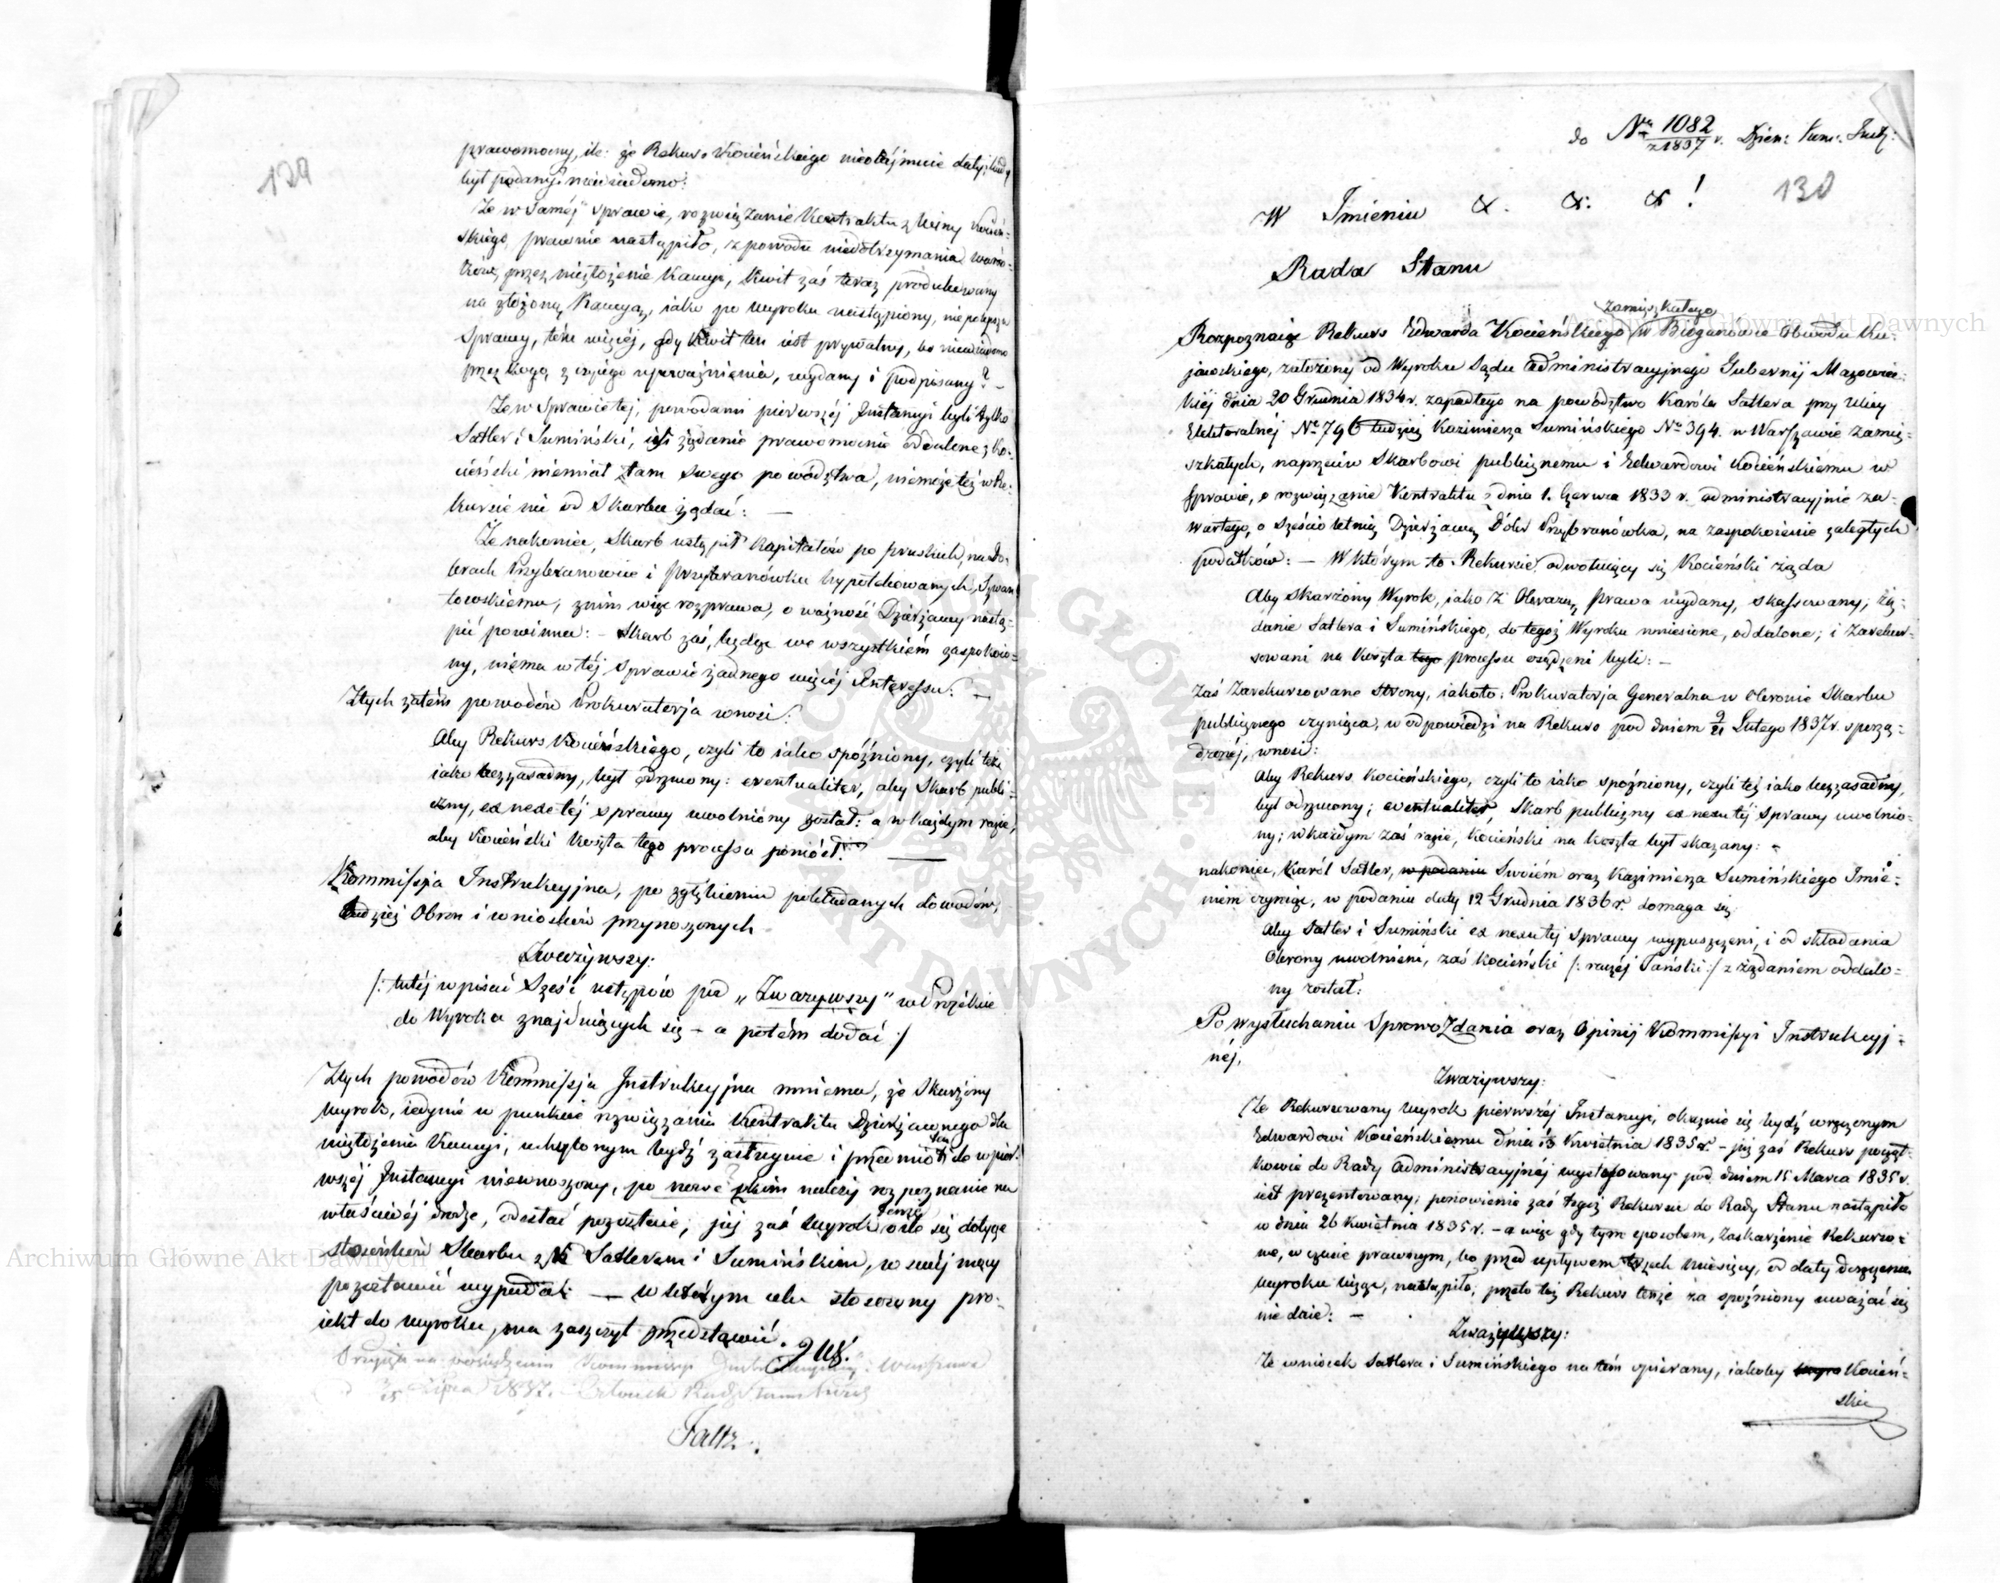 129
prawomocny, ile: że Rekurs Kocieńskiego nieobéjmuie daty, kiedy
był podany? niewiadomo:
Że w saméj sprawie, rozwiązanie Kontraktu z winy Kocień-
skiego, prawnie nastąpiło, z powodu niedotrzymania warun-
ków, przez niezłożenie Kaucyi, Kwit zaś teraz produkowany
na złożoną Kaucyą, iako po Wyroku nastąpiony, nie polepsza
Sprawy, tém więcéj, gdy Kwit ten iest prywatny, bo niewiadomo
przez kogo, z czyiego upoważnienia, wydany i podpisany? –
Że w Sprawie téj, powodami pierwszéj Instancyi byli tylko
Satler i Sumiński, ich żądanie prawomocnie oddalone; Ko-
cieński niemiał tam swego powództwa, niemoże też w Re-
kursie nic od Skarbu żądać: —
Że nakoniec, Skarb ustąpił Kapitałów po pruskich, na do-
brach Przybranowie i Przybranówku hypotekowanych,
towskiemu, z nim więc rozprawa, o ważność Dzierżawy nastą-
pić powinna: – Skarb zaś, będąc we wszystkiém zaspokoio-
ny, niema w téj sprawie żadnego więcéj Interessu: —
Z tych zatém powodów Prokuratorja wnosi:
Aby Rekurs Kocieńskiego, czyli to iako spóźniony, czyli też
iako bezzasadny, był odrzucony: eventualiter, aby Skarb publi-
czny, ex nexu téj sprawy uwolniony został: a w każdym razie,
aby Kocieński koszta tego processu poniósł. —
Kommissja Instrukcyjna, po zgłębieniu pokładanych dowodów,
tudzież Obron i wniosków przynoszonych
Zważywszy:
/: tutéj wpisać Sześć ustępów pod „Zważywszy" w Proiekcie
do Wyroku znajduiących się – a potém dodać :/
Z tych powodów Kommissja Instrukcyjna mniema, że Skarżony
wyrok, iedynie w punkcie rozwiązania Kontraktu Dzierżawnego dla
niezłożenia Kaucyi, uchylonym bydź zasługuie i przedmiot ten do w pier-
wszéj Instancyi niewnoszony, po nowe należy rozpoznanie na
właściwéj drodze, odesłać pozostaie, jéj zaś wyrok tenże o ile się dotyczy
stosunków Skarbu z Satlerem i Sumińskim, w swéj mocy
pozostawić wypada: — w którym celu stosowny pro-
iekt do wyroku, ma zaszczyt przedstawić.
Lipca 1837.
Faltz.
do Nru 1082 z 1837 r. Dzien: Kom: Instr:
130
W Imieniu &. &. &!
Rada Stanu
zamieszkałego
Rozpoznaiąc Rekurs Edwarda Kocieńskiego w Bieganowie Obwodu Ku-
jawskiego, założony od Wyroku Sądu Administracyjnego Gubernij Mazowiec-
kiéj dnia 20 Grudnia 1834 r. zapadłego na powództwo Karóla Satlera przy Ulicy
Elektoralnéj Nro 796 tudzież Kazimierza Sumińskiego Nro 394. w Warszawie zamie-
szkałych, naprzeciw Skarbowi publicznemu i Edwardowi Kocieńskiemu w
Sprawie, o rozwiązanie Kontraktu z dnia 1. Czerwca 1833 r. administracyjnie za-
wartego, o sześcioletnią Dzierżawę Dóbr Przybranówka, na zaspokoienie zaległych
podatków: — W którym to Rekursie odwołuiący się Kocieński żąda
Aby skarżony Wyrok, iako z Obrazą Prawa wydany, skassowany; żą-
danie Satlera i Sumińskiego, do tegoż Wyroku wniesione, oddalone; i Zarekur-
sowani na koszta tego processu osądzeni byli: –
Zaś Zarekursowane strony, iakoto: Prokuratorja Generalna w Obronie Skarbu
publicznego czyniąca, w odpowiedzi na Rekurs pod dniem 9/21 Lutego 1837 r. sporzą-
dzonéj, wnosi:
Aby Rekurs Kocieńskiego, czyli to iako spóźniony, czyli też iako bezzasadny,
był odrzucony; eventualiter, Skarb publiczny ex nexu téj sprawy uwolnio-
ny; w każdym zaś razie, Kocieński na koszta był skazany: –
nakoniec, Karól Satler, w podaniu Swoiém oraz Kazimierza Sumińskiego Imie-
niem czyniąc, w podaniu daty 12 Grudnia 1836 r. domaga się
Aby Satler i Sumiński ex nexu téj sprawy wypuszczeni, i od składania
Obrony uwolnieni, zaś Kocieński /: raczéj Tański :/ z żądaniem oddalo-
ny został:
Po wysłuchaniu Sprawozdania oraz Opinij Kommissyi Instrukcyj-
néj,
Zważywszy:
Że Rekursowany Wyrok pierwszéj Instancyi, okazuie się bydź wręczonym
Edwardowi Kocieńskiemu dnia 13 Kwietnia 1835 r. – już zaś Rekurs począt-
kowie do Rady Administracyjnéj wystosowany pod dniem 15 Marca 1835 r.
iest prezentowany; ponowienie zaś tegoż Rekursu do Rady Stanu nastąpiło
w dniu 26 Kwietnia 1835 r. – a więc gdy tym sposobem, zaskarżenie Rekurso-
we, w czasie prawnym, bo przed upływem trzech miesięcy, od daty doręczenia
wyroku licząc, nastąpiło, przeto też Rekurs tenże za spóźniony uważać się
nie daie: —
Zważywszy:
Że wniosek Satlera i Sumińskiego na tém opierany, iakoby Kocień-
ski
Archiwum Główne Akt Dawnych
Archiwum Główne Akt Dawnych
ARCHIWUM GŁÓWNE AKT DAWNYCH